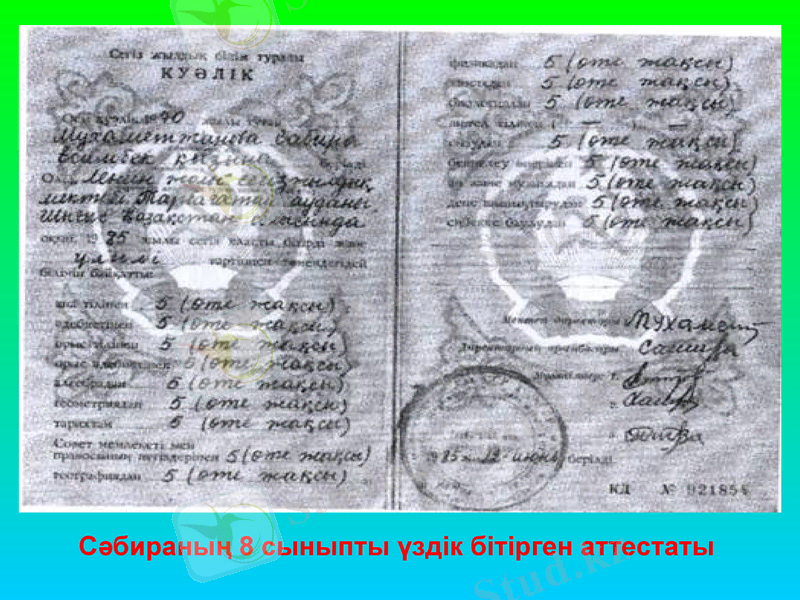 Сегіз жылдық білім туралы
КУӘЛІК
Осы куәлік 1970 жылы туған
Мухаметжанова Сабира
Есимбек қызына берілді
Ол Ленин жылдық
мектебі Тарбағатай ауданы
Шығыс Қазақстан облысында
оқып, 1985 жылы сегіз класты бітірді және
үлгілі тәртіппен төмендегідей
білімін байқатты:
ана тілінен 5 (өте жақсы)
әдебиетінен 5 (өте жақсы)
орыс тілінен 5 (өте жақсы)
орыс әдебиетінен 5 (өте жақсы)
алгебрадан 5 (өте жақсы)
геометриядан 5 (өте жақсы)
тарихтан 5 (өте жақсы)
Совет мемлекеті мен
правосының негіздерінен 5 (өте жақсы)
географиядан 5 (өте жақсы)
физикадан 5 (өте жақсы)
химиядан 5 (өте жақсы)
биологиядан 5 (өте жақсы)
шетел тілінен ( — ) —
сызудан 5 (өте жақсы)
бейнелеу өнерінен 5 (өте жақсы)
ән және музыкадан 5 (өте жақсы)
дене шынықтырудан 5 (өте жақсы)
еңбекке баулудан 5 (өте жақсы)
Мектеп директоры
Директордың орынбасары
Мұғалімдер
1985 ж. 12 июнь берілді
КД № 921854
Сәбираның 8 сыныпты үздік бітірген аттестаты